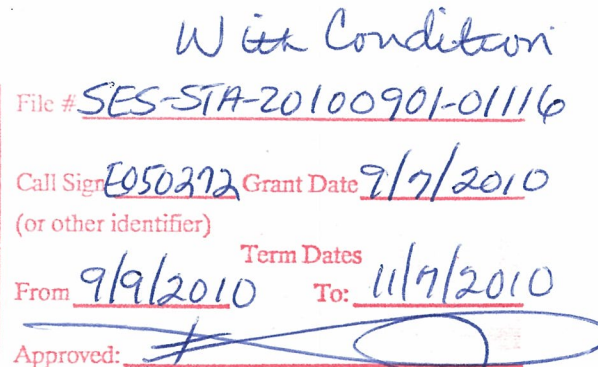 With Condition
File # SES-STA-20100901-01116
Call Sign E050272 Grant Date 9/7/2010
(or other identifier)
Term Dates
From 9/9/2010 To: 11/7/2010
Approved: